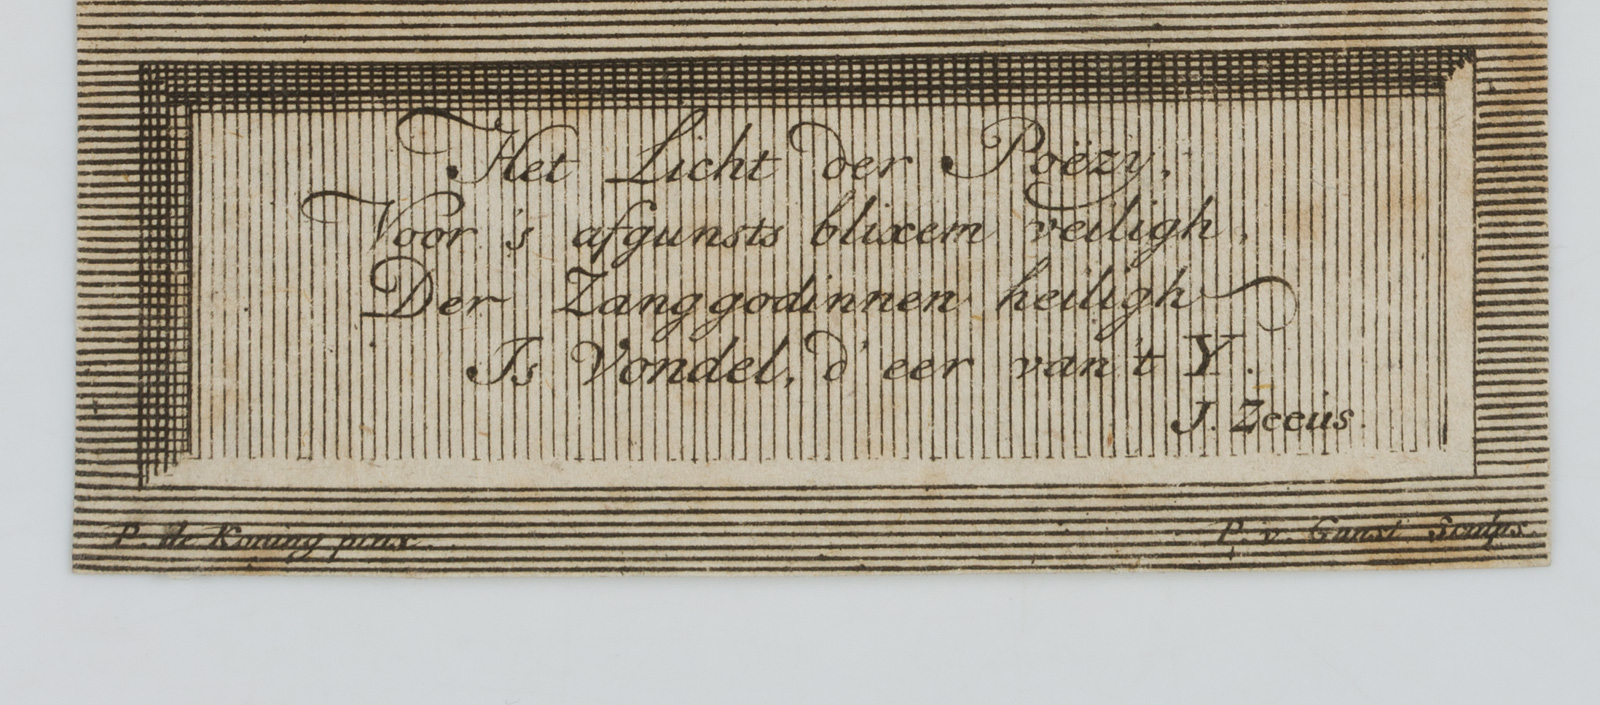 Het Licht der Poëzy,
Voor 's afgunsts blixem veiligh,
Der Zanggodinnen heiligh
Is Vondel, d' eer van 't Y.
J. Zeeus.
P. de Koning pinx. P. v. Gunst Sculps.